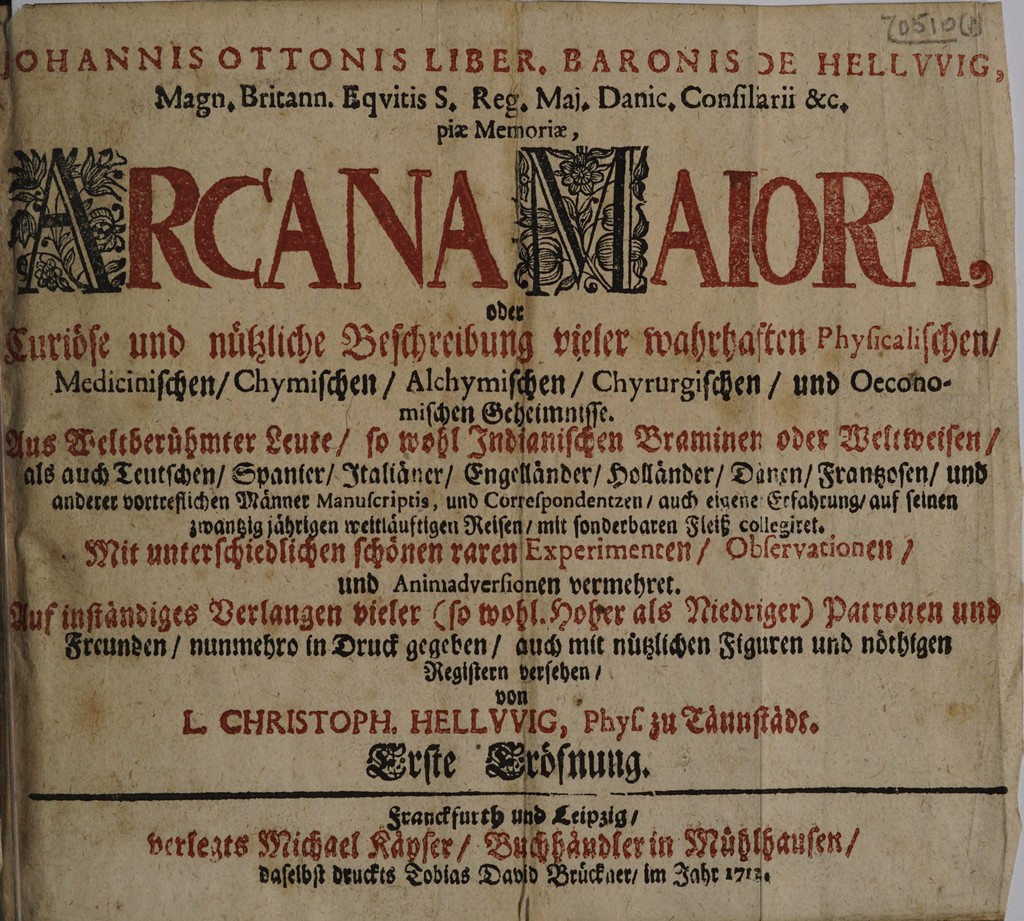 70510(1)
JOHANNIS OTTONIS LIBER. BARONIS DE HELLVVIG,
Magn. Britann. Eqvitis S. Reg. Maj. Danic. Conſiliarii &c.
piæ Memoriæ,
ARCANA MAIORA,
oder
Curiöſe und nützliche Beſchreibung vieler wahrhaften Phyſicaliſchen/
Mediciniſchen/ Chymiſchen/ Alchymiſchen/ Chyrurgiſchen/ und Oecono-
miſchen Geheimniſſe.
Aus Weltberühmter Leute/ ſo wohl Indianiſchen Braminen oder Weltweiſen/
als auch Teutſchen/ Spanier/ Italiäner/ Engelländer/ Holländer/ Dänen/ Frantzoſen/ und
anderer vortreflichen Männer Manuſcriptis, und Correſpondentzen/ auch eigene Erfahrung/ auf ſeinen
zwantzig jährigen weitläuftigen Reiſen/ mit ſonderbaren Fleiß collegiret.
Mit unterſchiedlichen ſchönen raren Experimenten/ Obſervationen/
und Animadverſionen vermehret.
Auf inſtändiges Verlangen vieler (ſo wohl Hoher als Niedriger) Patronen und
Freunden/ nunmehro in Druck gegeben/ auch mit nützlichen Figuren und nöthigen
Regiſtern verſehen/
von
L. CHRISTOPH. HELLVVIG, Phyſ. zu Tännſtädt.
Erſte Eröfnung.
Franckfurth und Leipzig/
verlegts Michael Käyſer/ Buchhändler in Mühlhauſen/
daſelbſt druckts Tobias David Brückner/ im Jahr